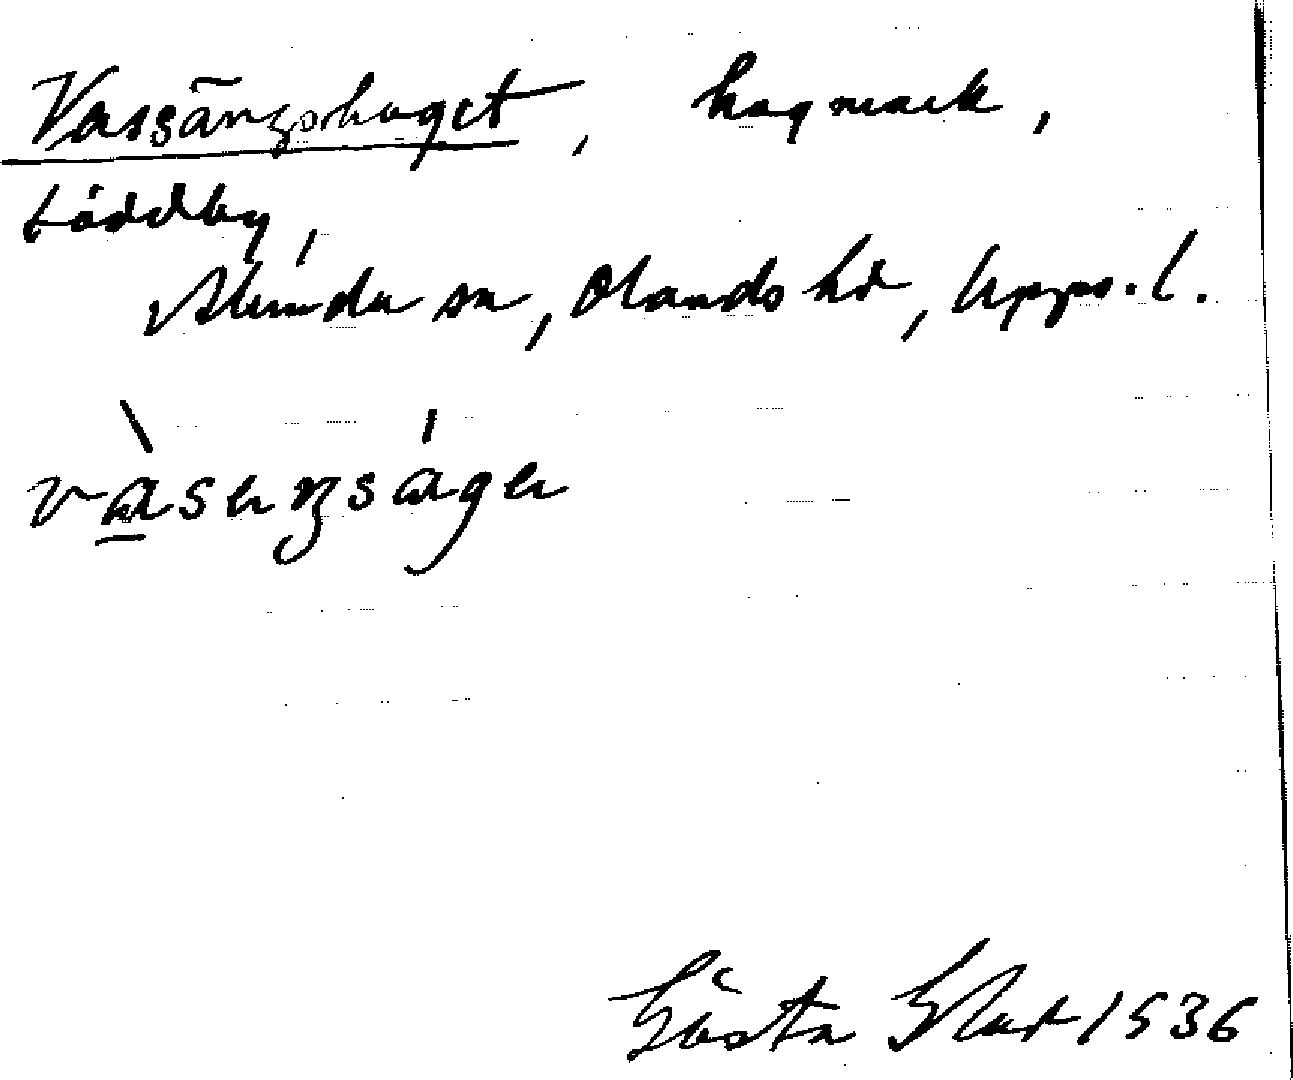 Vassängshaget, hagmark,
Löddby,
Alunda sn, Olands hd, Upps. l.
vàseŋságer
Gösta 1936